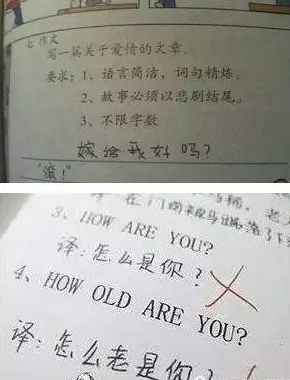 七 作文
写一篇关于爱情的文章。
要求：1、语言简洁，词句精炼。
2、故事必须以悲剧结尾。
3、不限字数
嫁给我好吗？
"滚！"
3、HOW ARE YOU?
译：怎么是你？
4、HOW OLD ARE YOU?
译：怎么老是你？